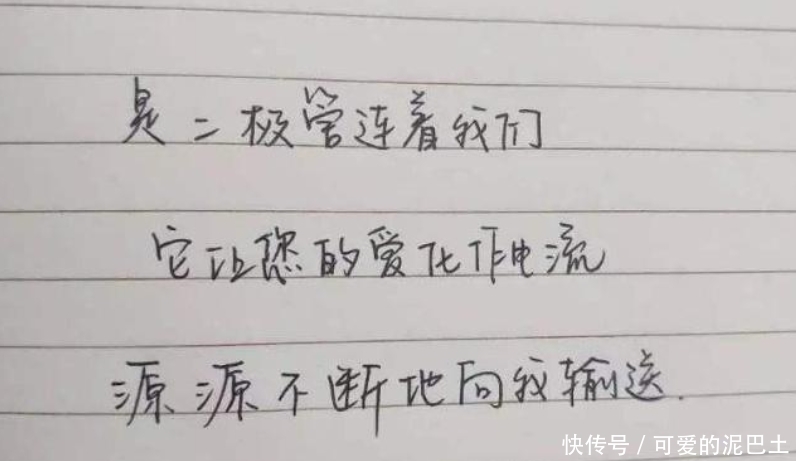 是二极管连着我们
它让您的爱化作电流
源源不断地向我输送.
快传号/可爱的泥巴土